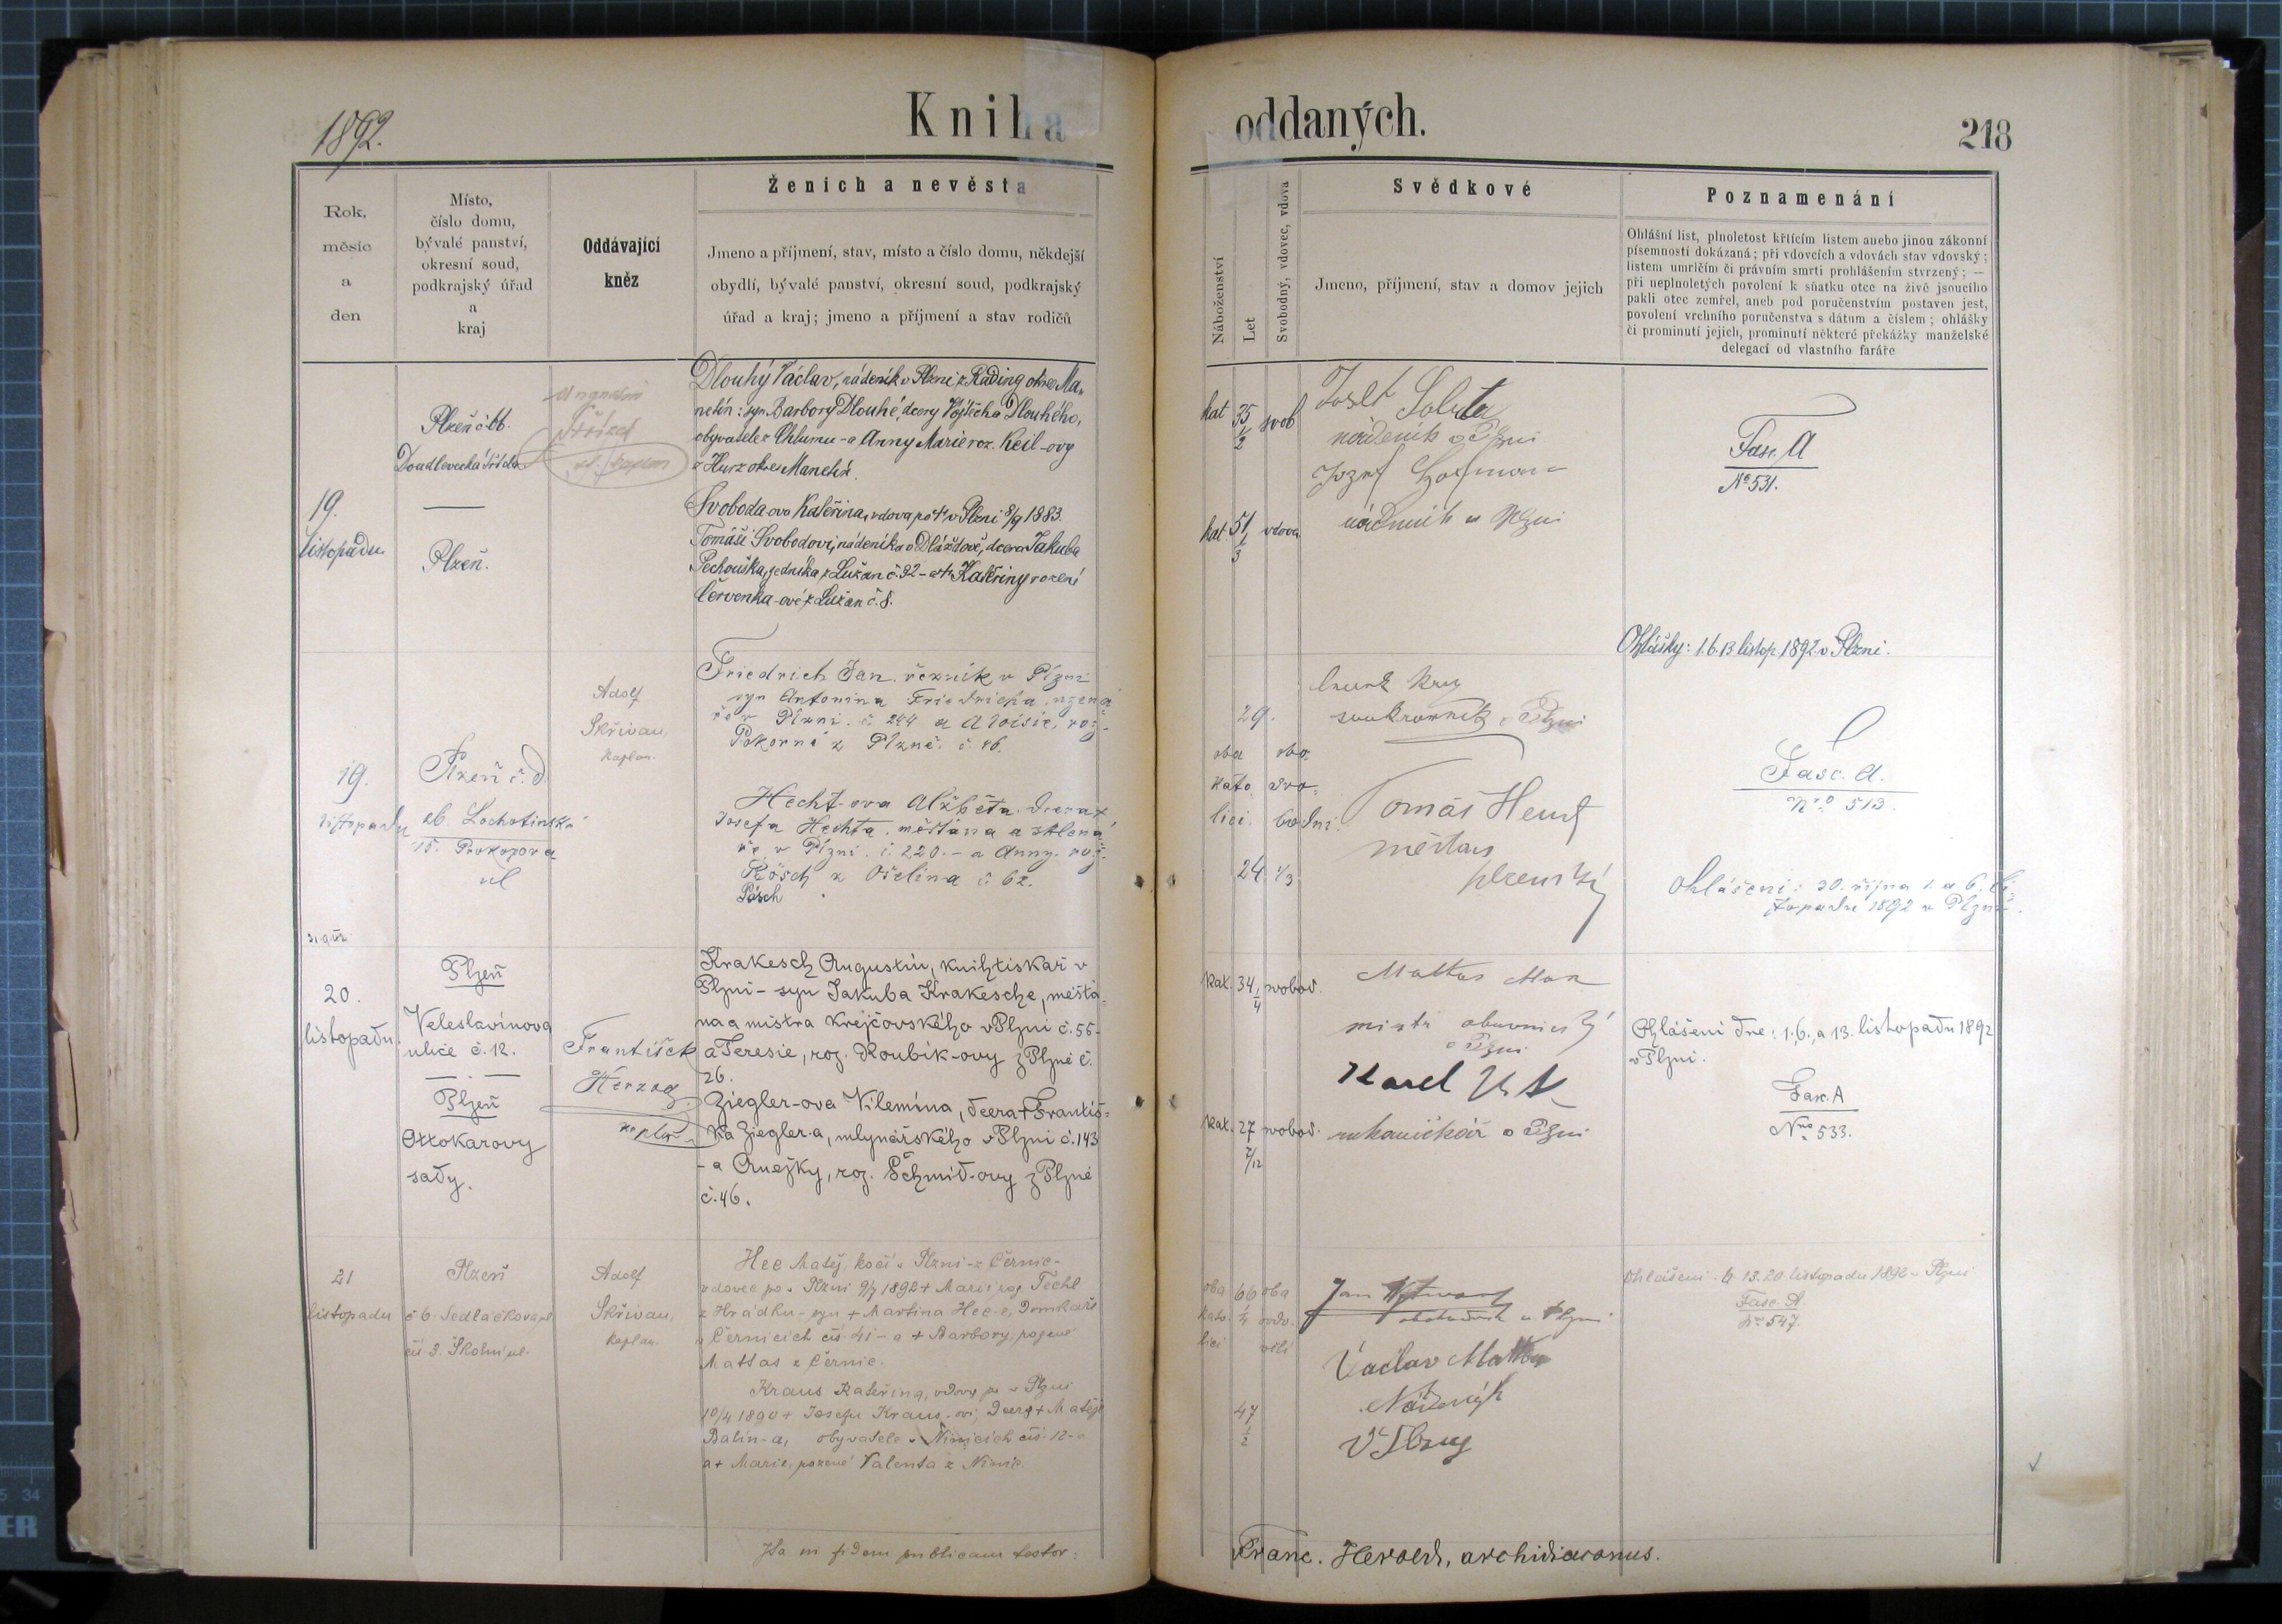 1892.
Kniha oddaných.
218
Rok,
měsíc
a
den
Místo,
číslo domu,
bývalé panství,
okresní soud,
podkrajský úřad
a
kraj
Oddávající
kněz
Ženich a nevěsta
Jmeno a příjmení, stav, místo a číslo domu, někdejší
obydlí, bývalé panství, okresní soud, podkrajský
úřad a kraj; jmeno a příjmení a stav rodičů
Náboženství
Let
Svobodný, vdovec, vdova
Svědkové
Jmeno, příjmení, stav a domov jejich
Poznamenání
Ohlášní list, plnoletost křticím listem anebo jinou zákonní
písemností dokázaná; při vdovcích a vdovách stav vdovský;
listem umrlčím či právním smrti prohlášením stvrzený; —
při neplnoletých povolení k sňatku otce na živě jsoucího
pakli otec zemřel, aneb pod poručenstvím postaven jest,
povolení vrchního poručenstva s dátum a číslem; ohlášky
či prominutí jejich, prominutí některé překážky manželské
delegací od vlastního faráře
19.
listopadu
Plzeň č.
Doudlevecká třída
Plzeň.
kaplan
Dlouhý Václav, nádeník v Plzni z Rading okres Ma-
netín: syn Barbory Dlouhé, dcery Vojtěcha Dlouhého,
obyvatele z Chlumu - a Anny Marie roz. Keil-ovy
z Hurz okres Manetín.
Svoboda ova Kateřina, vdova po + v Plzni 8/9 1883.
Tomáši Svobodovi, nádeníka v Dlážďově, dcera Jakuba
Pechouška, sedníka z Lužan č. 32 - a + Kateřiny rozené
Červenka-ové z Lužan č. 8.
kat 35 1/2 svob
kat. 51 1/3 vdova
Josef
nádeník v Plzni
Josef Hofman
nádeník v Plzni
Fasc. A
No 531.
Ohlášky: 1. 6. 13 listop. 1892 v Plzni.
19.
listopadu
Plzeň č. d.
Lochotínská
15. Prokopova
ul
Adolf
Skřivan,
kaplan.
Friedrich Jan, řezník v Plzni
syn Antonína Friedricha,
v Plzni. č. 244 a Aloisie, roz.
Pokorné z Plzně. č. 16.
Hecht-ova Alžběta. dcera +
Josefa Hechta, měšťana a sklená-
ře v Plzni. č. 220. - a Anny. roz.
Rösch z Ošelína č. 62.
Pösch
29.
oba oba
kato svo-
líci. bodní.
24 1/3
soukromník v Plzni
Tomáš
měšťan
plzeňský
Fasc. A.
Nro 513.
Ohlášení: 30. října 1. a 6. li-
stopadu 1892 v Plzni.
20.
listopadu
Plzeň
Veleslavínova
ulice č. 12.
Plzeň
Ottokarovy
sady.
František
Herzog
kaplan
Krakesch Augustin, knihtiskař v
Plzni - syn Jakuba Krakesche, měšťa-
na a mistra krejčovského v Plzni č. 55-
a Teresie, roz. Roubík-ovy z Plzně č.
26.
Ziegler-ova Vilemína, dcera + Františ-
ka Ziegler-a, mlynářského v Plzni č. 143
- a Anežky, roz. Schmid-ovy z Plzně
č. 46.
kat. 34 1/4 svobod.
kat. 27 7/12 svobod.
mistr obuvnický
v Plzni
Karel
rukavičkář v Plzni
Ohlášení dne: 1., 6., a 13. listopadu 1892
v Plzni.
Fasc. A
Nro 533.
21
listopadu
Plzeň
č 6. Sedláčkova ul.
čís 3. Školní ul.
Adolf
Skřivan,
kaplan.
Hee Matěj, kočí v Plzni - z Černic -
vdovec po v Plzni 9/7 1892 + Marii roz. Techl
z Hrádku - syn + Martina Hee-e, domkaře
v Černicích čís 41 - a + Barbory, rozené
Mattas z Černic.
Kraus Kateřina, vdova po v Plzni
10/4 1890 + Josefu Kraus-ovi; dcera + Matěje
Balín-a, obyvatele v Nimicích čís. 12 -
a + Marie, rozené Valenta z Nimic.
oba 66 oba
kato- 1/4 ovdo-
líci věli
47
1/2
Jan
v Plzni
Václav Mattas
Nádeník
V Plzni
Ohlášení. 6. 13. 20 listopadu 1892 v Plzni
Fasc. A.
Nro 547.
Ita in fidem publicam testor:
Franc. Herold, archidiaconus.